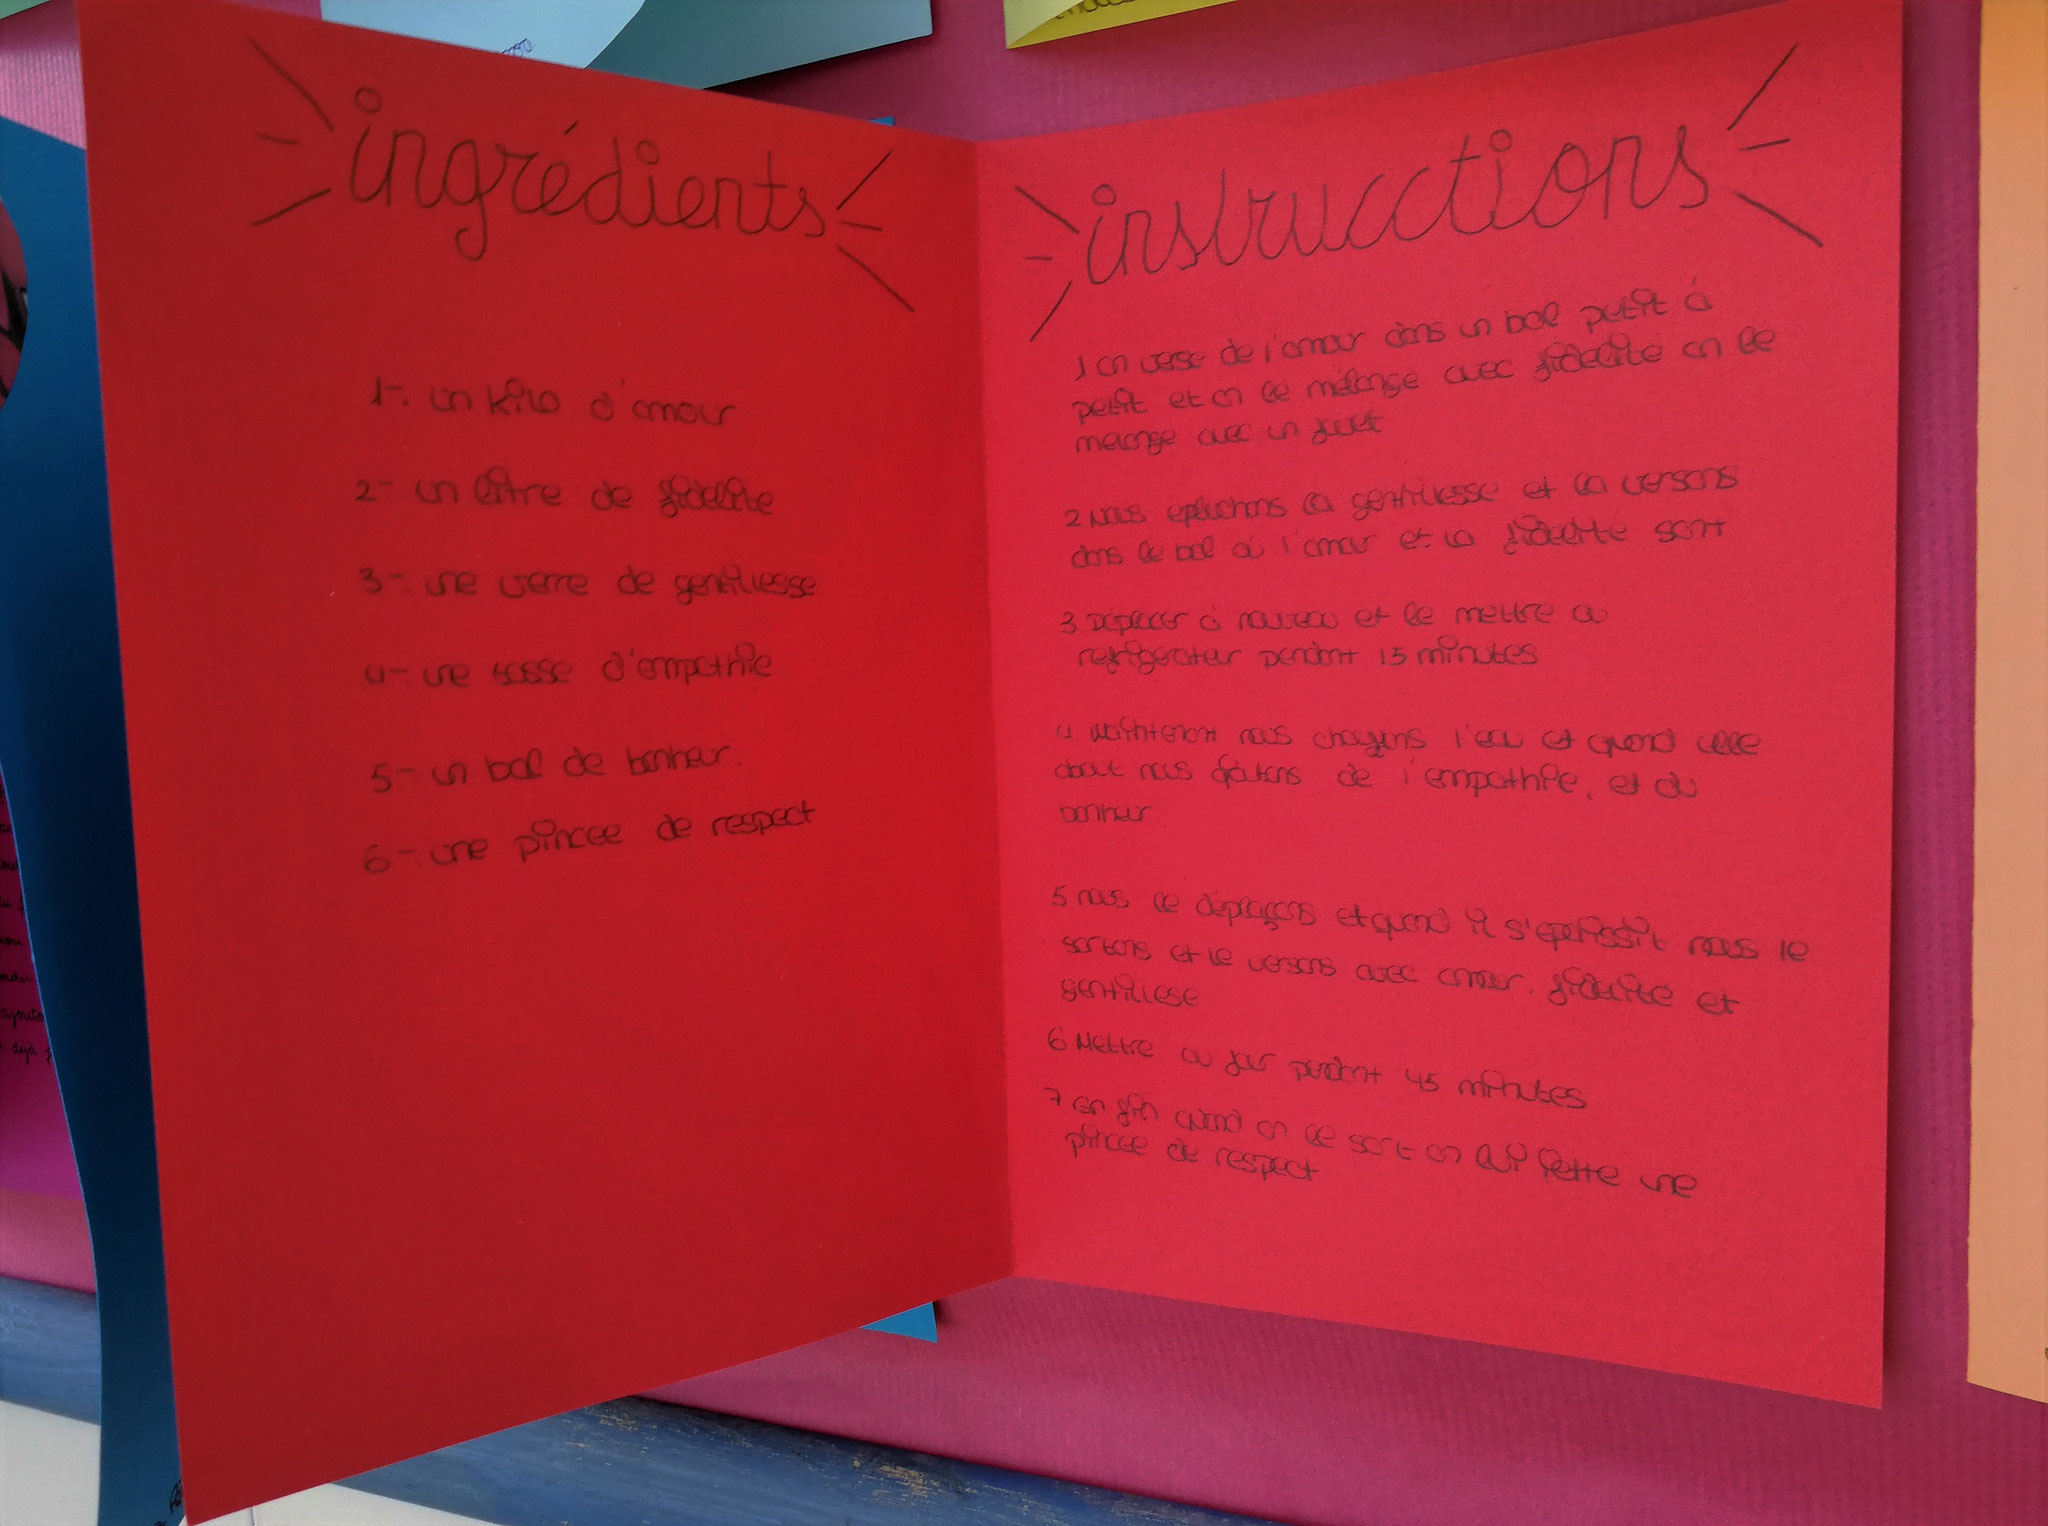 ingrédients
1-. un kilo d'amour
2- un litre de fidelite
3-. une verre de gentiliesse
4-. une tasse d'empathie
5- un bol de bonheur.
6-. une pincee de respect
instrucctions
1 on verse de l'amour dans un bol petit à
petit et on le mélange avec fidelité on le
melange avec un fouet
2 Nous epluchons la gentiliesse et la versons
dans le bol où l'amour et la fidelité sont
3 Déplacer à nouveau et le mettre au
refrigerateur pendant 15 minutes
4 Maintenant nous l'eau et quand elle
about nous de l'empathie, et du
bonheur
5 nous le deplaçons et quand il s'epaissit nous le
sortons et le versons avec amour. fidelité et
gentiliese
6 Mettre au four pendant 45 minutes
7 en fin quand on le sort on lui jette une
pincee de respect
ajouto
déjà